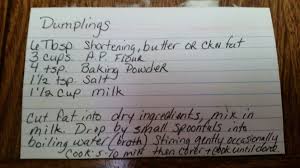 Dumplings
6 Tbsp. Shortening, butter OR ckn fat
3 cups A.P. Flour
4 tsp. Baking Powder
1 1/2 tsp. Salt
1 1/2 cup milk
Cut fat into dry ingredients, mix in
milk. Drop by small spoonfuls into
boiling water (broth) Stirring gently occasionally
Cook 5-10 min then cover + cook until done.